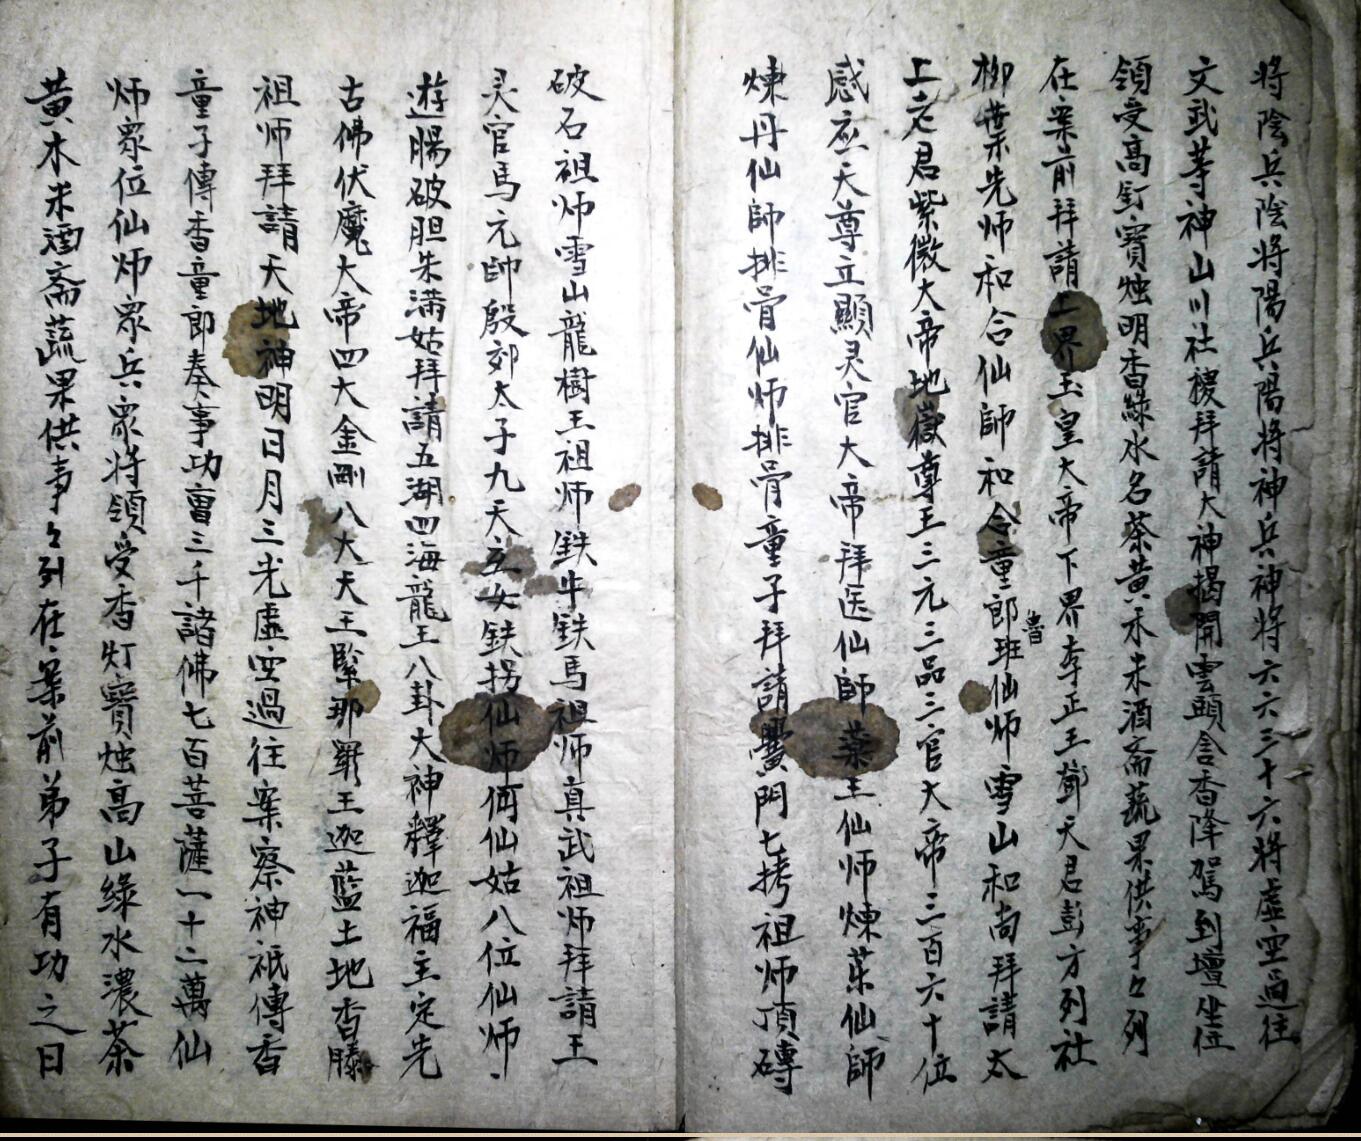 将陰兵陰将陽兵陽将神兵神将六六三十六将虚空過往
文武等神山川社稷拜請大神揭開雲頭含香降駕到壇坐位
領受高釘寶烛明香綠水名茶黄禾米酒斋蔬果供事々列
在案前拜請上界玉皇大帝下界李正王鄧天君彭方列社
柳葉先师和合仙師和合童郎班仙师雪山和尚拜請太
魯
上老君紫微大帝地嶽尊王三元三品三官大帝三百六十位
感应天尊立顯灵官大帝拜医仙師藥王仙师煉药仙師
煉丹仙師排骨仙师排骨童子拜請門七拷祖师頂磚
破石祖师雪山龍樹王祖师鉄牛鉄馬祖师真武祖师拜請王
灵官馬元帥殷郊太子九天玄女鉄拐仙师何仙姑八位仙师
遊腸破胆朱满姑拜請五湖四海龍王八卦大神釋迦福主定光
古佛伏魔大帝四大金剛八大天王緊那羅王迦藍土地香滕
祖师拜請天地神明日月三光虚空過往案察神祇傳香
童子傳香童郎奏事功曹三千諸佛七百菩薩一十二萬仙
师眾位仙师眾兵眾将領受香灯寶烛高山綠水濃茶
黄木米酒斋蔬果供事々列在案前弟子有功之日